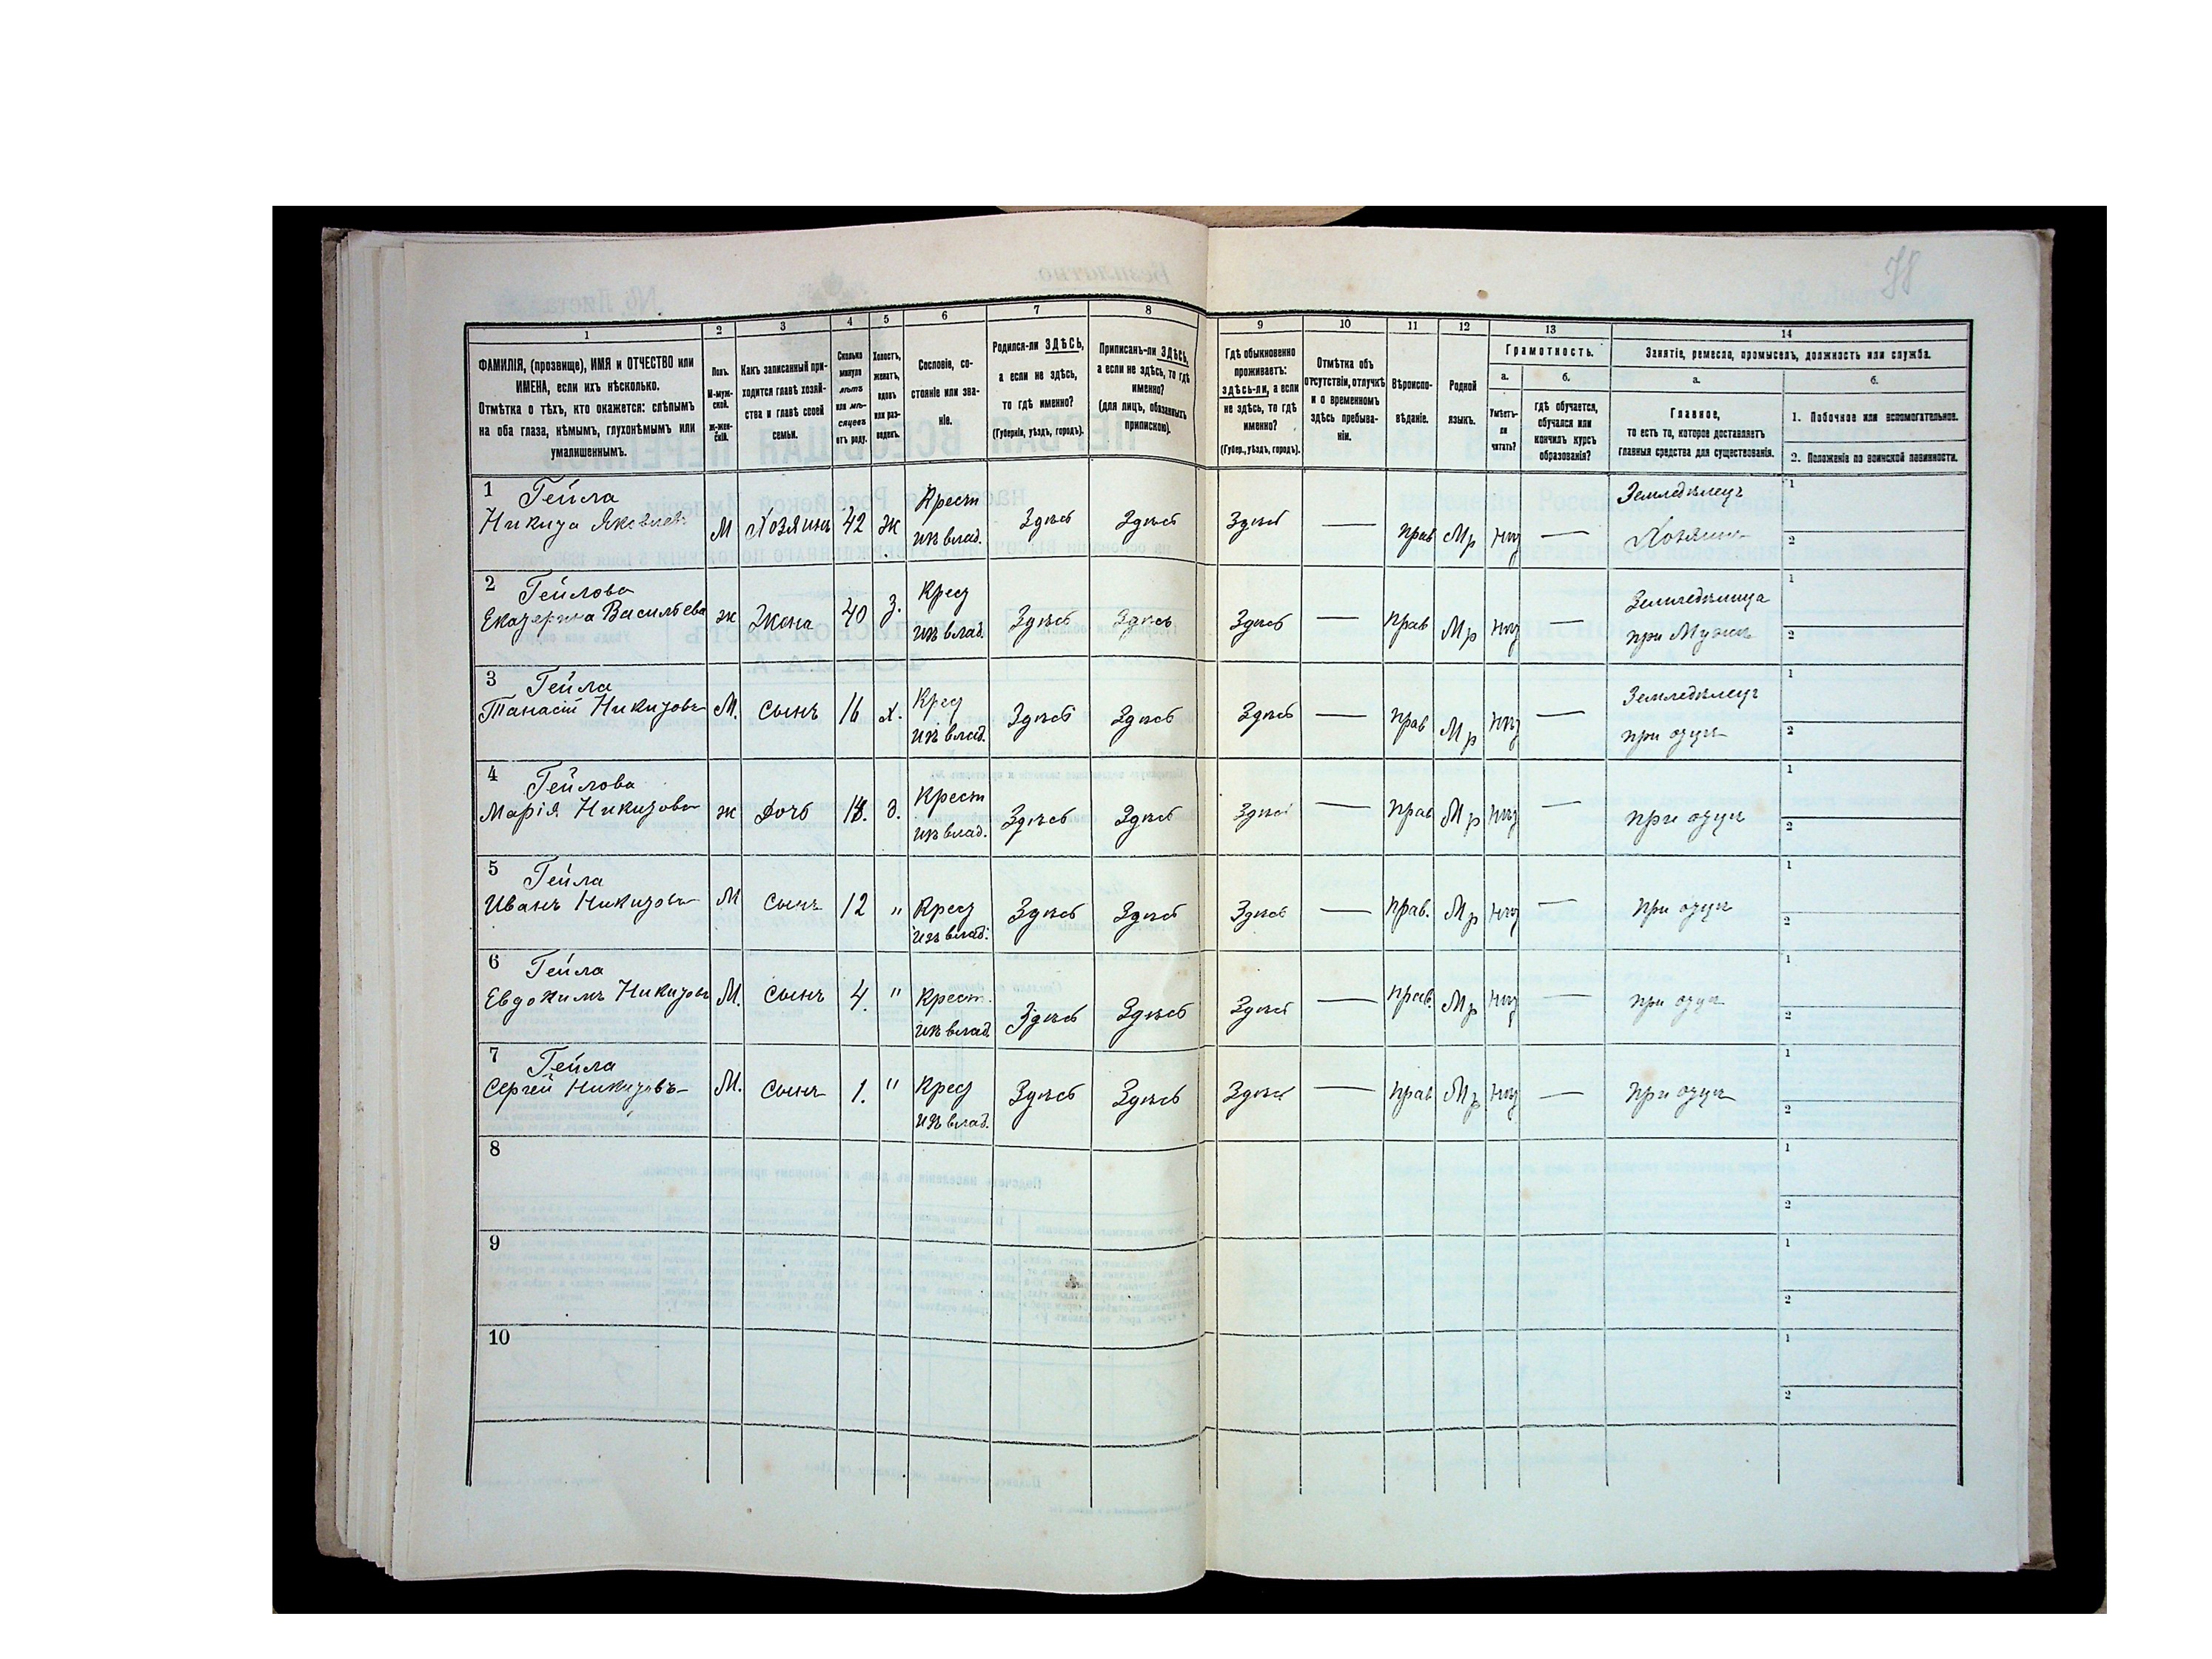 78
1
2
3
4
5
6
7
8
9
10
11
12
13
14
ФАМИЛІЯ, (прозвище), ИМЯ и ОТЧЕСТВО или
ИМЕНА, если ихъ нѣсколько.
Отмѣтка о тѣхъ, кто окажется: слѣпымъ
на оба глаза, нѣмымъ, глухонѣмымъ или
умалишеннымъ.
Полъ.
М-муж-
ской.
Ж-жен-
скій.
Какъ записанный при-
ходится главѣ хозяй-
ства и главѣ своей
семьи.
Сколько
минуло
лѣтъ
или мѣ-
сяцевъ
отъ роду.
Холостъ,
женатъ,
вдовъ
или раз-
веденъ.
Сословіе, со-
стояніе или зва-
ніе.
Родился-ли ЗДѢСЬ,
а если не здѣсь,
то гдѣ именно?
(Губернія, уѣздъ, городъ).
Приписанъ-ли ЗДѢСЬ,
а если не здѣсь, то гдѣ
именно?
(для лицъ, обязанныхъ
припискою).
Гдѣ обыкновенно
проживаетъ:
ЗДѢСЬ-ли, а если
не здѣсь, то гдѣ
именно?
(Губер., уѣздъ, городъ).
Отмѣтка объ
отсутствіи, отлучкѣ
и о временномъ
здѣсь пребыва-
ніи.
Вѣроиспо-
вѣданіе.
Родной
языкъ.
Грамотность.
а.
б.
Умѣетъ-
ли
читать?
гдѣ обучается,
обучался или
кончилъ курсъ
образованія?
Занятіе, ремесло, промыселъ, должность или служба.
а.
б.
Главное,
то есть то, которое доставляетъ
главныя средства для существованія.
1. Побочное или вспомогательное.
2. Положеніе по воинской повинности.
1 Гейла
Никита Яковлев
М Хозяинъ 42 ж
Крест
изъ влад.
Здѣсь Здѣсь Здѣсь — прав Мр нѣт —
Земледѣлец
Хозяинъ
1
2
2 Гейлова
Екатерина Васильева
ж Жена 40 з.
Крест
изъ влад.
Здѣсь Здѣсь Здѣсь — прав Мр нѣт —
Земледѣлица
при Мужѣ
1
2
3 Гейла
Танасій Никитовъ
М. сынъ 16 х.
Крест
изъ влад.
Здѣсь Здѣсь Здѣсь — прав Мр нѣт —
Земледѣлец
при отцѣ
1
2
4 Гейлова
Марія Никитова
ж Дочь 18. д.
Крест
изъ влад.
Здѣсь Здѣсь Здѣсь — прав Мр нѣт —
при отцѣ
1
2
5 Гейла
Иванъ Никитовъ
М сынъ 12 "
Крест
изъ влад.
Здѣсь Здѣсь Здѣсь — прав. Мр нѣт —
при отцѣ
1
2
6 Гейла
Евдокимъ Никитовъ
М. сынъ 4. "
Крест.
изъ влад.
Здѣсь Здѣсь Здѣсь — прав. Мр нѣт —
при отцѣ
1
2
7 Гейла
Сергей Никитовъ
М. сынъ 1. "
Крест
изъ влад.
Здѣсь Здѣсь Здѣсь — прав Мр нѣт —
при отцѣ
1
2
8
1
2
9
1
2
10
1
2